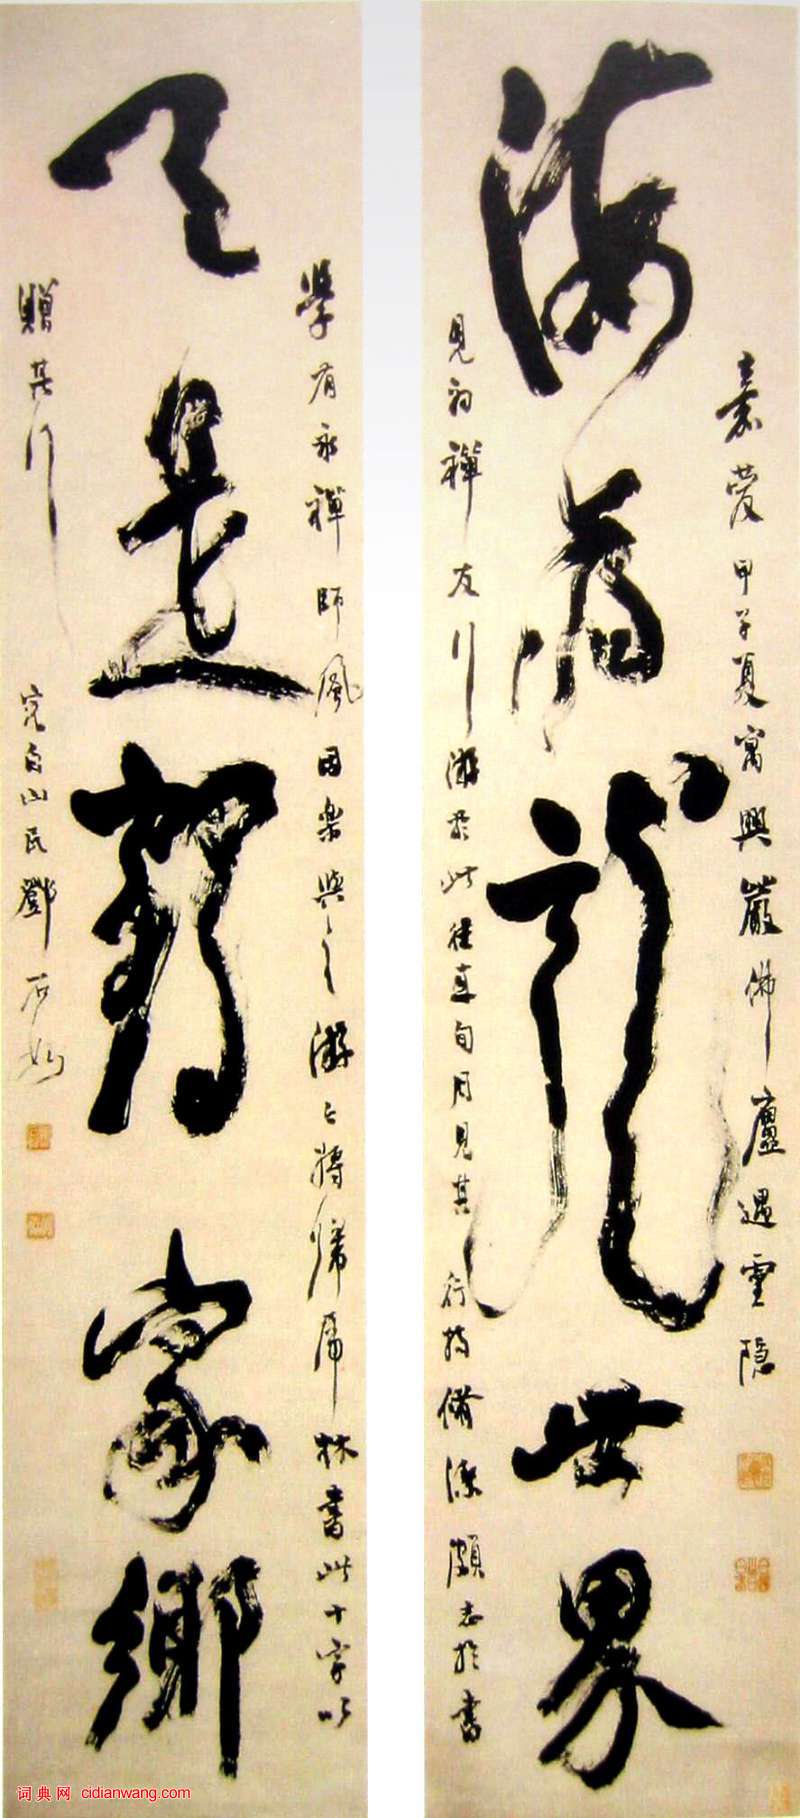 海为龙世界
嘉庆甲子夏寓兴嚴佛廬遇雲隐
見初禪友行游於此往真旬月見其行持脩潔頗志於書
天是鶴家鄉
學有永禪師風因樂與之游亡将歸虎林書此十字以
贈其行
完白山民鄧石如
词典网 cidianwang.com